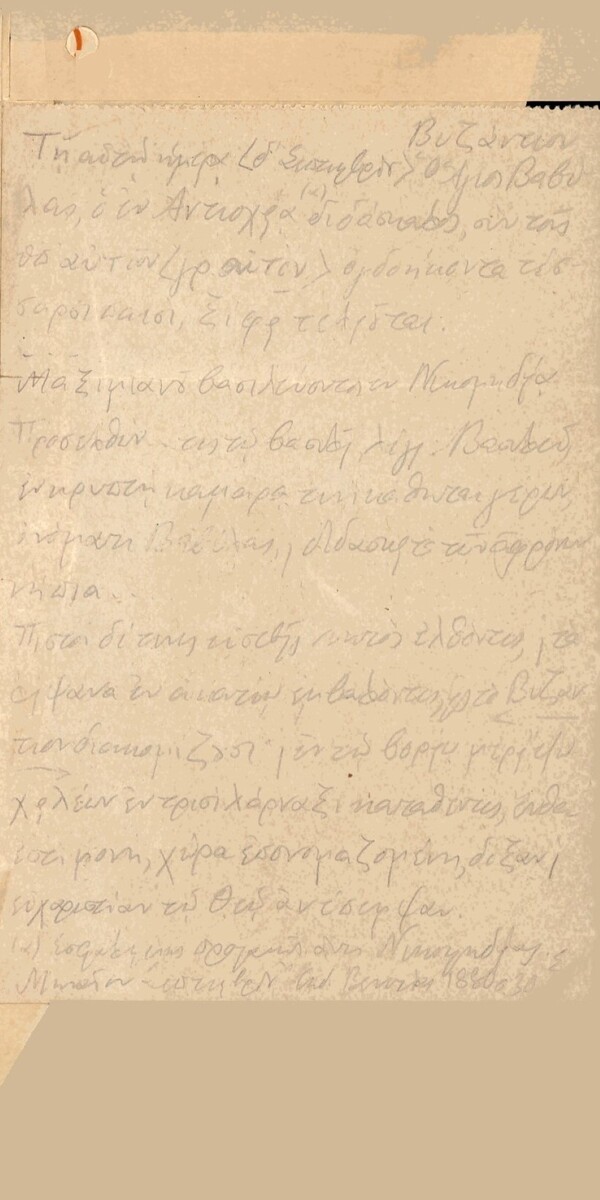 Βυζάντιον
Τῇ αὐτῇ ἡμέρᾳ (δ' Σεπτεμβρίου) ὁ ἅγιος Βαβύ
λας, ὁ ἐν Ἀντιοχείᾳ (α) διδάσκαλος, σὺν τοῖς
ὑπ' αὐτὸν (γρ αὐτὸν) ὀγδοήκοντα τέσ-
σαρσι παισί, ξίφει τελειοῦται.
Μαξιμιανοῦ βασιλεύοντος ἐν Νικομηδείᾳ
Προσελθὼν τις τῷ βασιλεῖ λέγει: Βασιλεῦ,
ἐν κρυπτῇ καμάρᾳ τινὶ κάθηται γέρων,
ὀνόματι Βαβύλας, διδάσκει τὰ ἄφρονα
νήπια..
Πιστοὶ δέ τινες εὐσεβεῖς νυκτὸς ἐλθόντες, τὰ
λείψανα ἐν ἀκατίῳ ἐμβαλόντες, εἰς τὸ Βυζάν
τιον διακομίζουσι· ἐν τῷ βορείῳ μέρει ἔξω
ἐν τρισὶ λάρναξι καταθέντες, ἔνθα
ἐστι μονή, χώρα ἐπονομαζομένη, δόξαν
εὐχαριστίαν τῷ Θεῷ ἀνέπεμψαν.
(α) Νικομηδείας
Μηναῖον Σεπτεμβρίου Βενετία 1880 σ 30